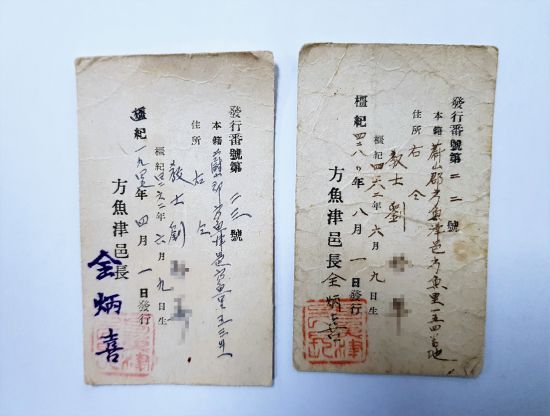 發行番號第二三號
本籍 蔚山郡方魚津邑方魚里
住所 右仝
敎士 劉
檀紀四二六二年六月九日生
檀紀一九四五年四月一日發行
方魚津邑長
金炳喜
發行番號第二二號
本籍 蔚山郡方魚津邑方魚里一五四番地
住所 右仝
敎士 劉
檀紀四二六二年六月九日生
檀紀四二八〇年八月一日發行
方魚津邑長金炳喜